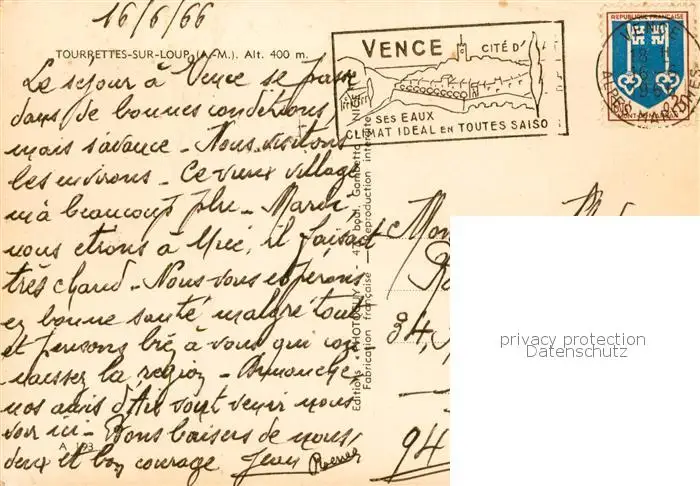 16/6/66
TOURRETTES-SUR-LOUP (A.-M.). Alt. 400 m.
Le séjour à Vence se passe
dans de bonnes conditions,
mais s'avance - Nous visitons
les environs - Ce vieux village
m'a beaucoup plu - Mardi
nous étions à Nice, il faisait
très chaud - Nous vous espérons
en bonne santé malgré tout
et pensons à vous qui con
naissez la région - Dimanche
nos amis d'Aix vont venir nous
voir ici - Bons baisers de nous
deux et bon courage Jean
A 193
Editions "PHOTOGUY" - 47, boul. Gambetta - NICE
Fabrication française - Reproduction interdite
VENCE CITÉ D'
SES EAUX
CLIMAT IDEAL EN TOUTES SAISO
REPUBLIQUE FRANÇAISE
VENCE
ALPES MARITIMES
MONT-DE-MARSAN
94
privacy protection
Datenschutz